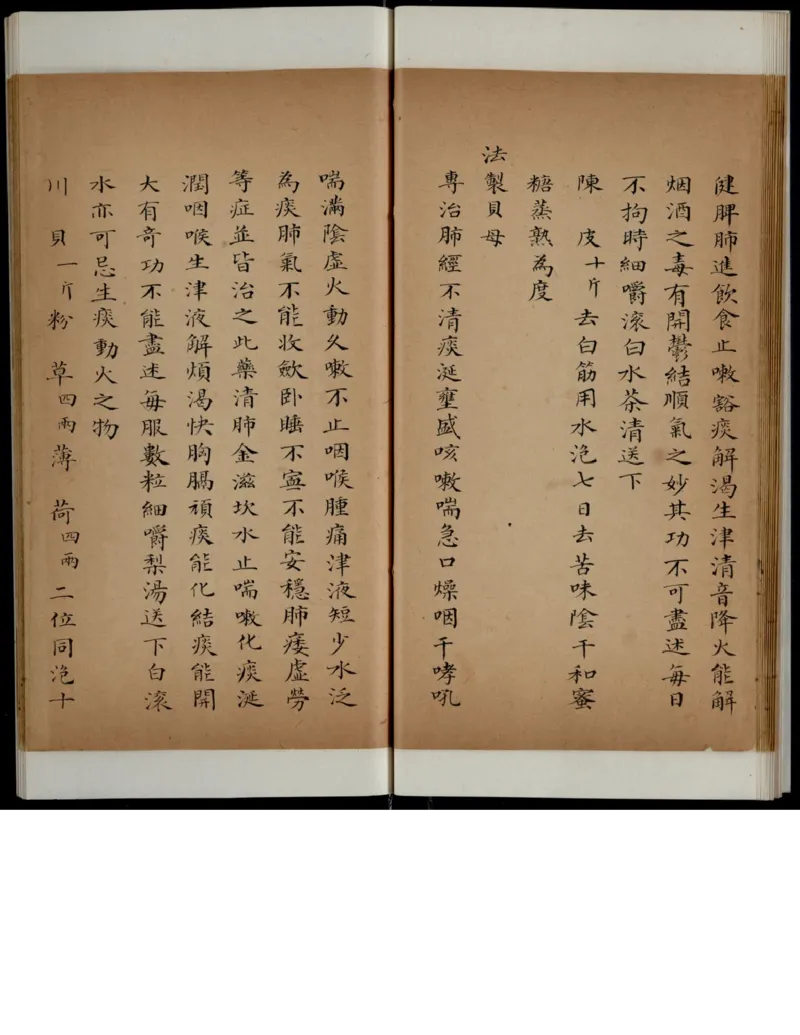 健脾肺進飲食止嗽豁痰解渴生津清音降火能解
烟酒之毒有開鬱結順氣之妙其功不可盡述每日
不拘時細嚼滚白水茶清送下
陳皮十斤去白筋用水泡七日去苦味陰干和蜜
糖蒸熟為度
法製貝母
專治肺經不清痰涎壅盛咳嗽喘急口燥咽干哮吼
喘滿陰虛火動久嗽不止咽喉腫痛津液短少水泛
為痰肺氣不能收歛卧睡不寧不能安穩肺痿虛勞
等症並皆治之此藥清肺金滋坎水止喘嗽化痰涎
潤咽喉生津液解煩渴快胸膈頑痰能化結痰能開
大有奇功不能盡述每服數粒細嚼梨湯送下白滚
水亦可忌生痰動火之物
川貝一斤粉草四兩薄荷四兩二位同泡十